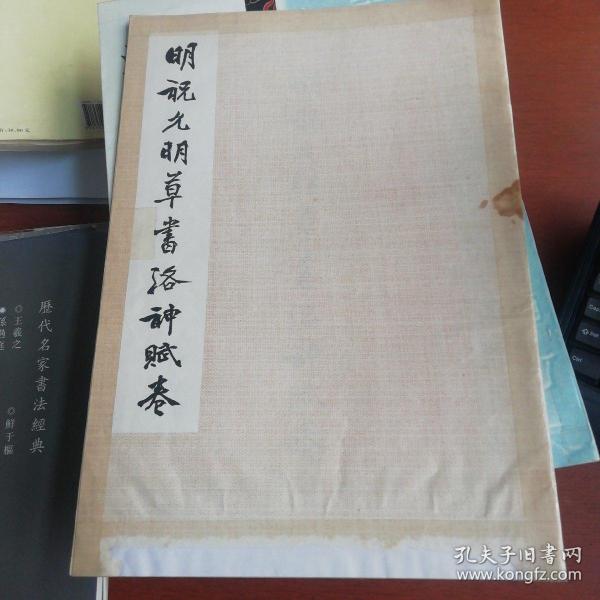 明祝允明草書洛神賦卷
歷代名家書法經典
◎王羲之
◎鮮于樞
Ctrl
孔夫子旧书网
www.kongfz.com